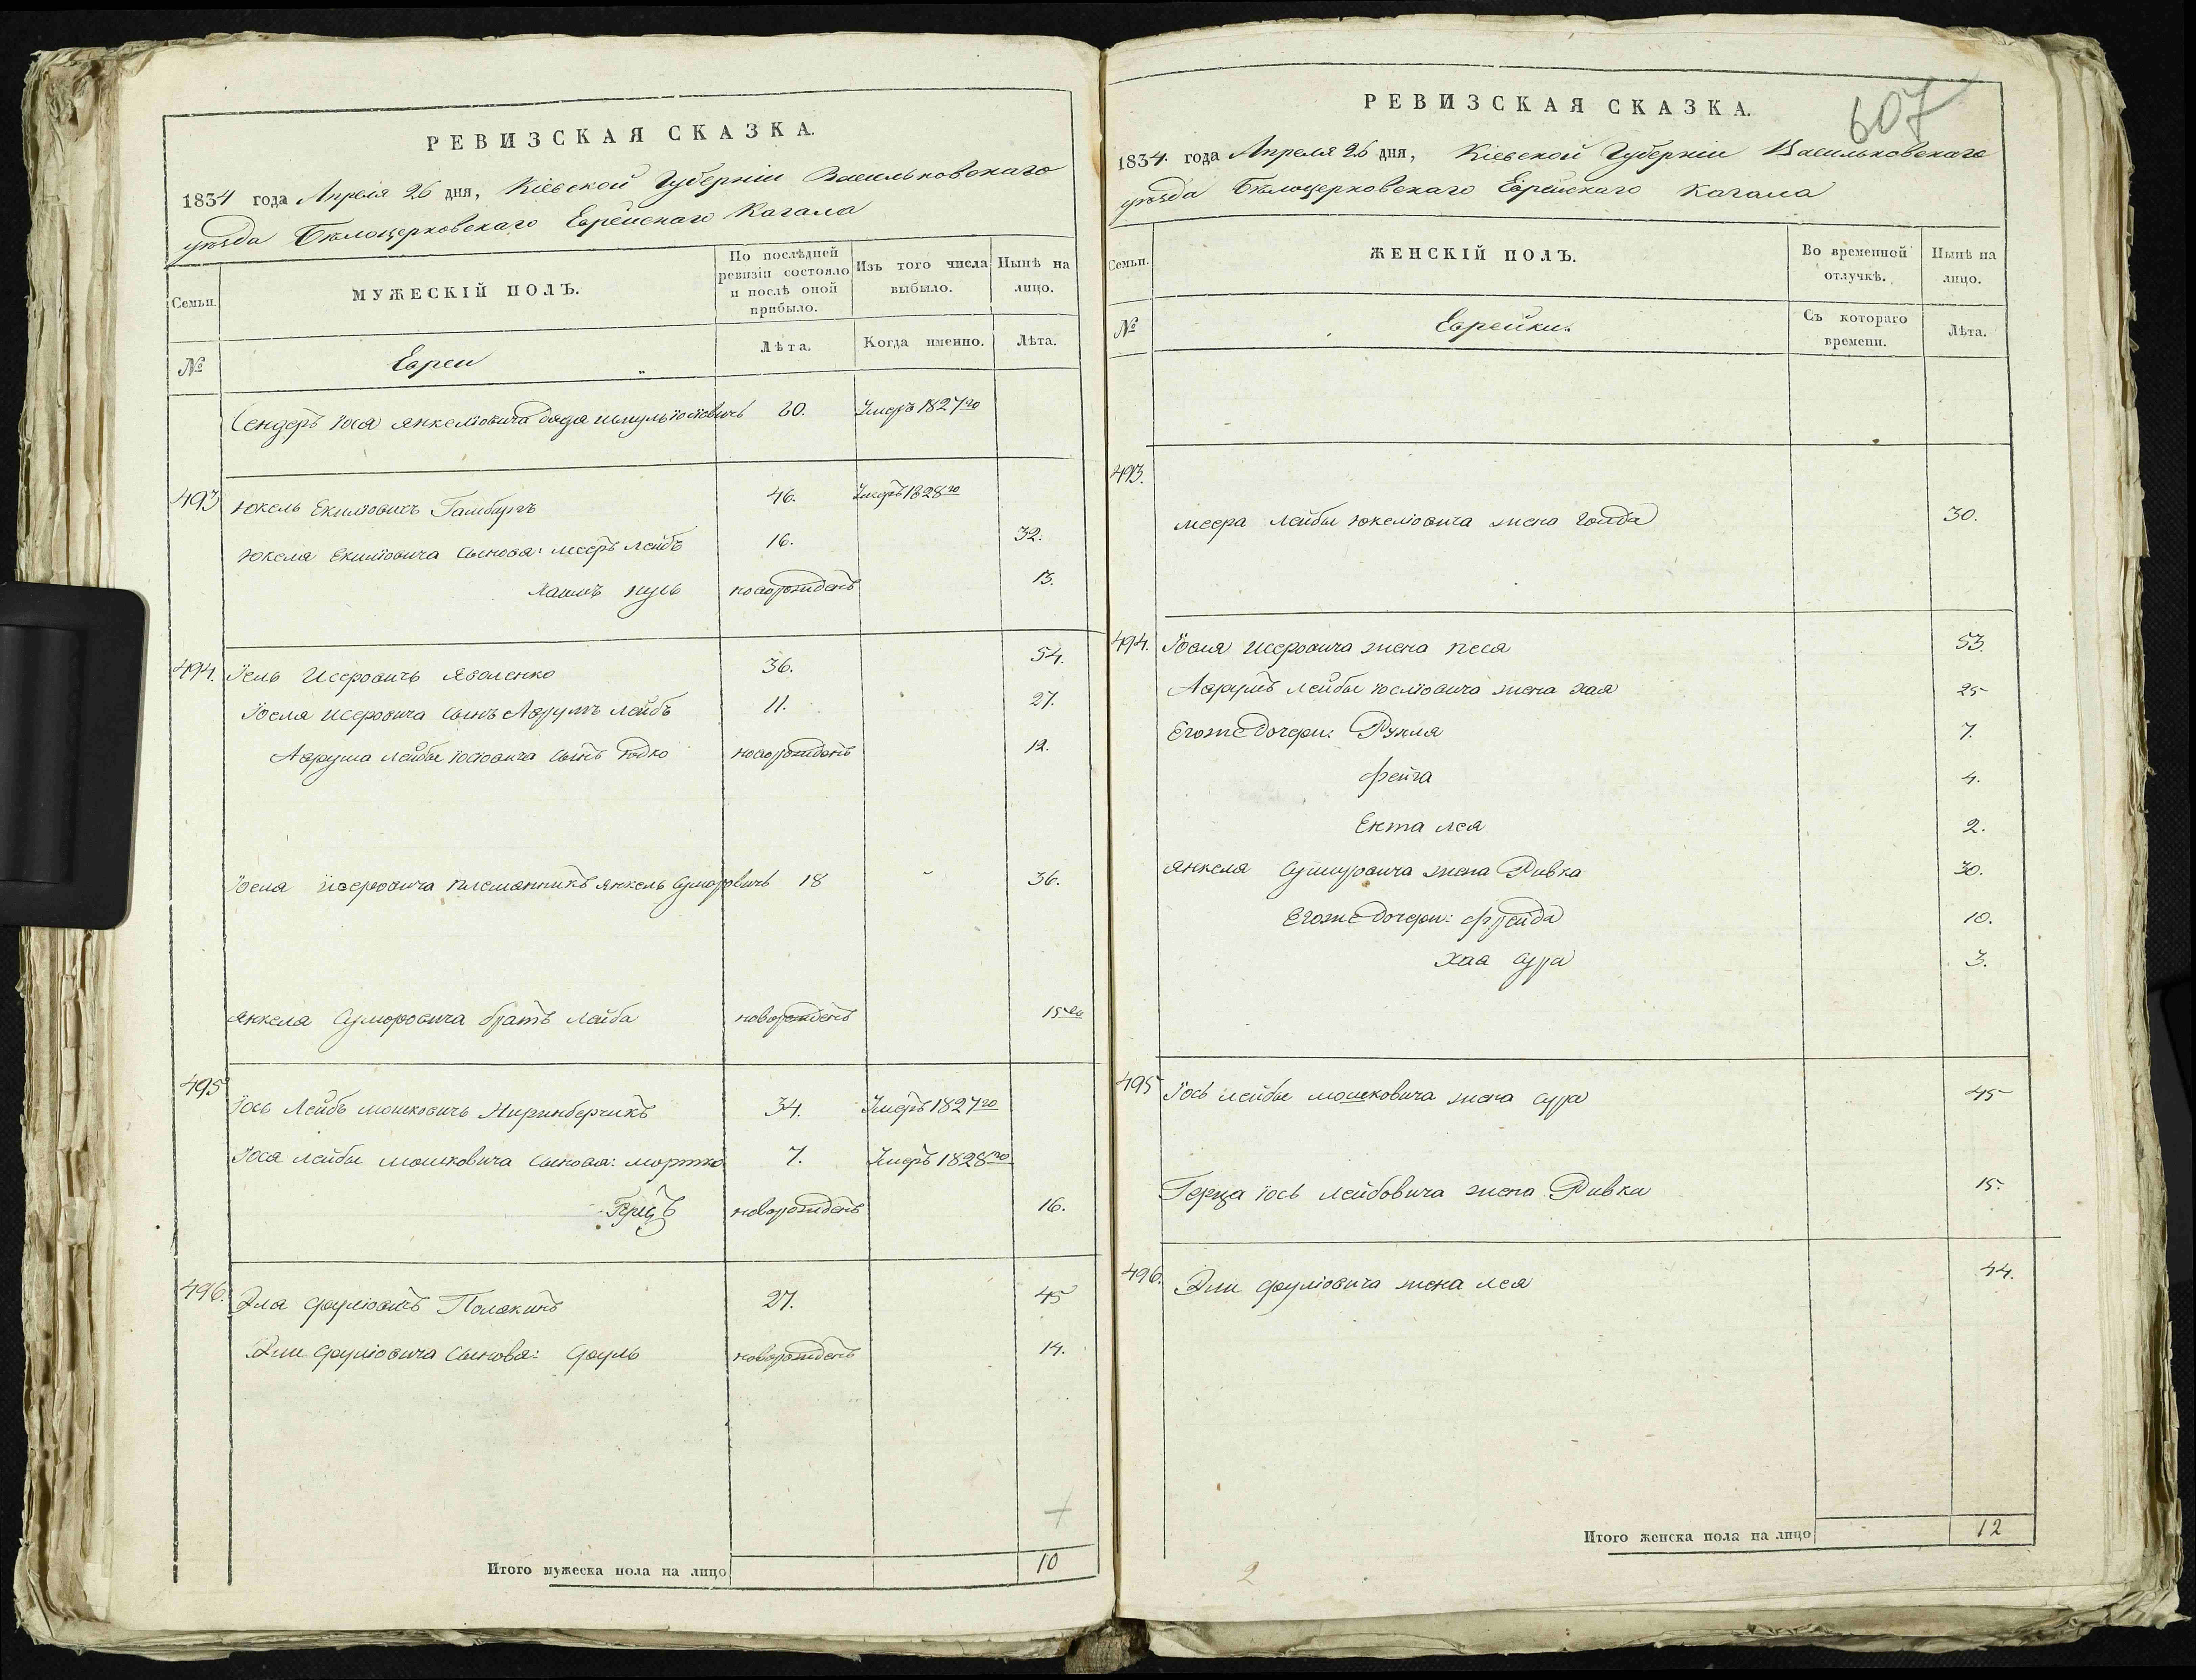 РЕВИЗСКАЯ СКАЗКА.
1834 года Апреля 26 дня, Кіевской Губерніи Васильковскаго
уѣзда Бѣлоцерковскаго Еврейскаго Кагала
Семьи.
МУЖЕСКІЙ ПОЛЪ.
По послѣдней ревизіи состояло и послѣ оной прибыло.
Изъ того числа выбыло.
Нынѣ на лицо.
№
Евреи
Лѣта.
Когда имянно.
Лѣта.
Сендеръ Іося Янкелiовича дядя 60. Умеръ 1827го
493 Юкель Екилiовичъ Гамбургъ 46. Умеръ 1828го
Юкеля Екилiовича сыновя: Мееръ Лейбъ 16. 32.
Хаимъ новорожденъ 13.
494. Іось Исеровичъ Яволенко 36. 54.
Іосля Исеровича сынъ Аврумъ Лейбъ 11. 27.
Аврума Лейбы сынъ Юдко новорожденъ 12.
Іосля Исеровича племянникъ Янкель 18 36.
Янкеля братъ Лейба новорожденъ 15
495 Іось Лейбъ Мошковичъ Ниринберчикъ 34. Умеръ 1827го
Іося Лейбы Мошковича сыновя: Мортко 7. Умеръ 1828го
Герцъ новорожденъ 16.
496. Эля Сруліовичъ Полякинъ 27. 45
Эли Сруліовича сыновя: Сруль новорожденъ 14.
Итого мужеска пола на лицо 10
607
РЕВИЗСКАЯ СКАЗКА.
1834. года Апреля 26 дня, Кіевской Губерніи Васильковскаго
уѣзда Бѣлоцерковскаго Еврейскаго Кагала
Семьи.
ЖЕНСКІЙ ПОЛЪ.
Во временной отлучкѣ.
Нынѣ на лицо.
№
Еврейки.
Съ котораго времени.
Лѣта.
493.
Меера Лейбы Юкелiовича жена Голда 30.
494. Іосля Исеровича жена Песя 53.
Аврумъ Лейбы Іослiовича жена Хая 25
Егоже дочери: Рухля 7.
Фейга 4.
Ента Лея 2.
Янкеля жена Ривка 30.
Егоже дочери: Фрейда 10.
Хая Сура 3.
495 Іось Лейбы Мошковича жена Сура 45
Герца Іось Лейбовича жена Ривка 15.
496. Эли Сруліовича жена Лея 44.
Итого женска пола на лицо 12
2